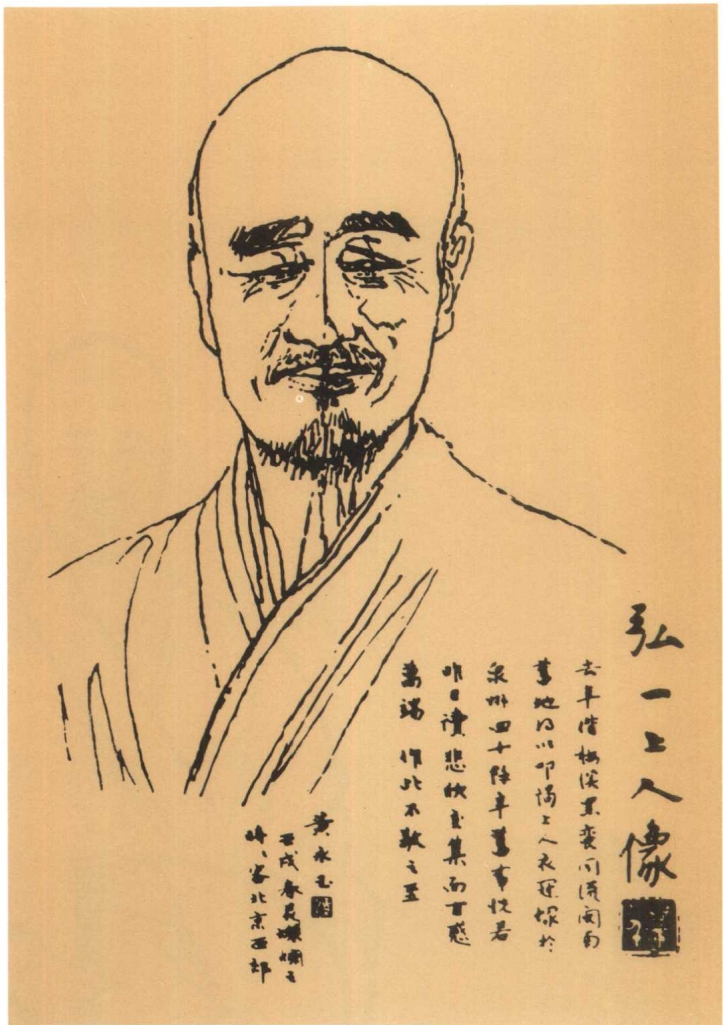 弘一上人像
去年偕梅溪黑蛮同游闽南
旧地得以叩谒上人衣冠塚於
泉州四十馀年旧事恍若
昨日读悲欣交集而百感
万端 作此不敬之至
黄永玉
壬戌春灿烂之
时客北京西郊